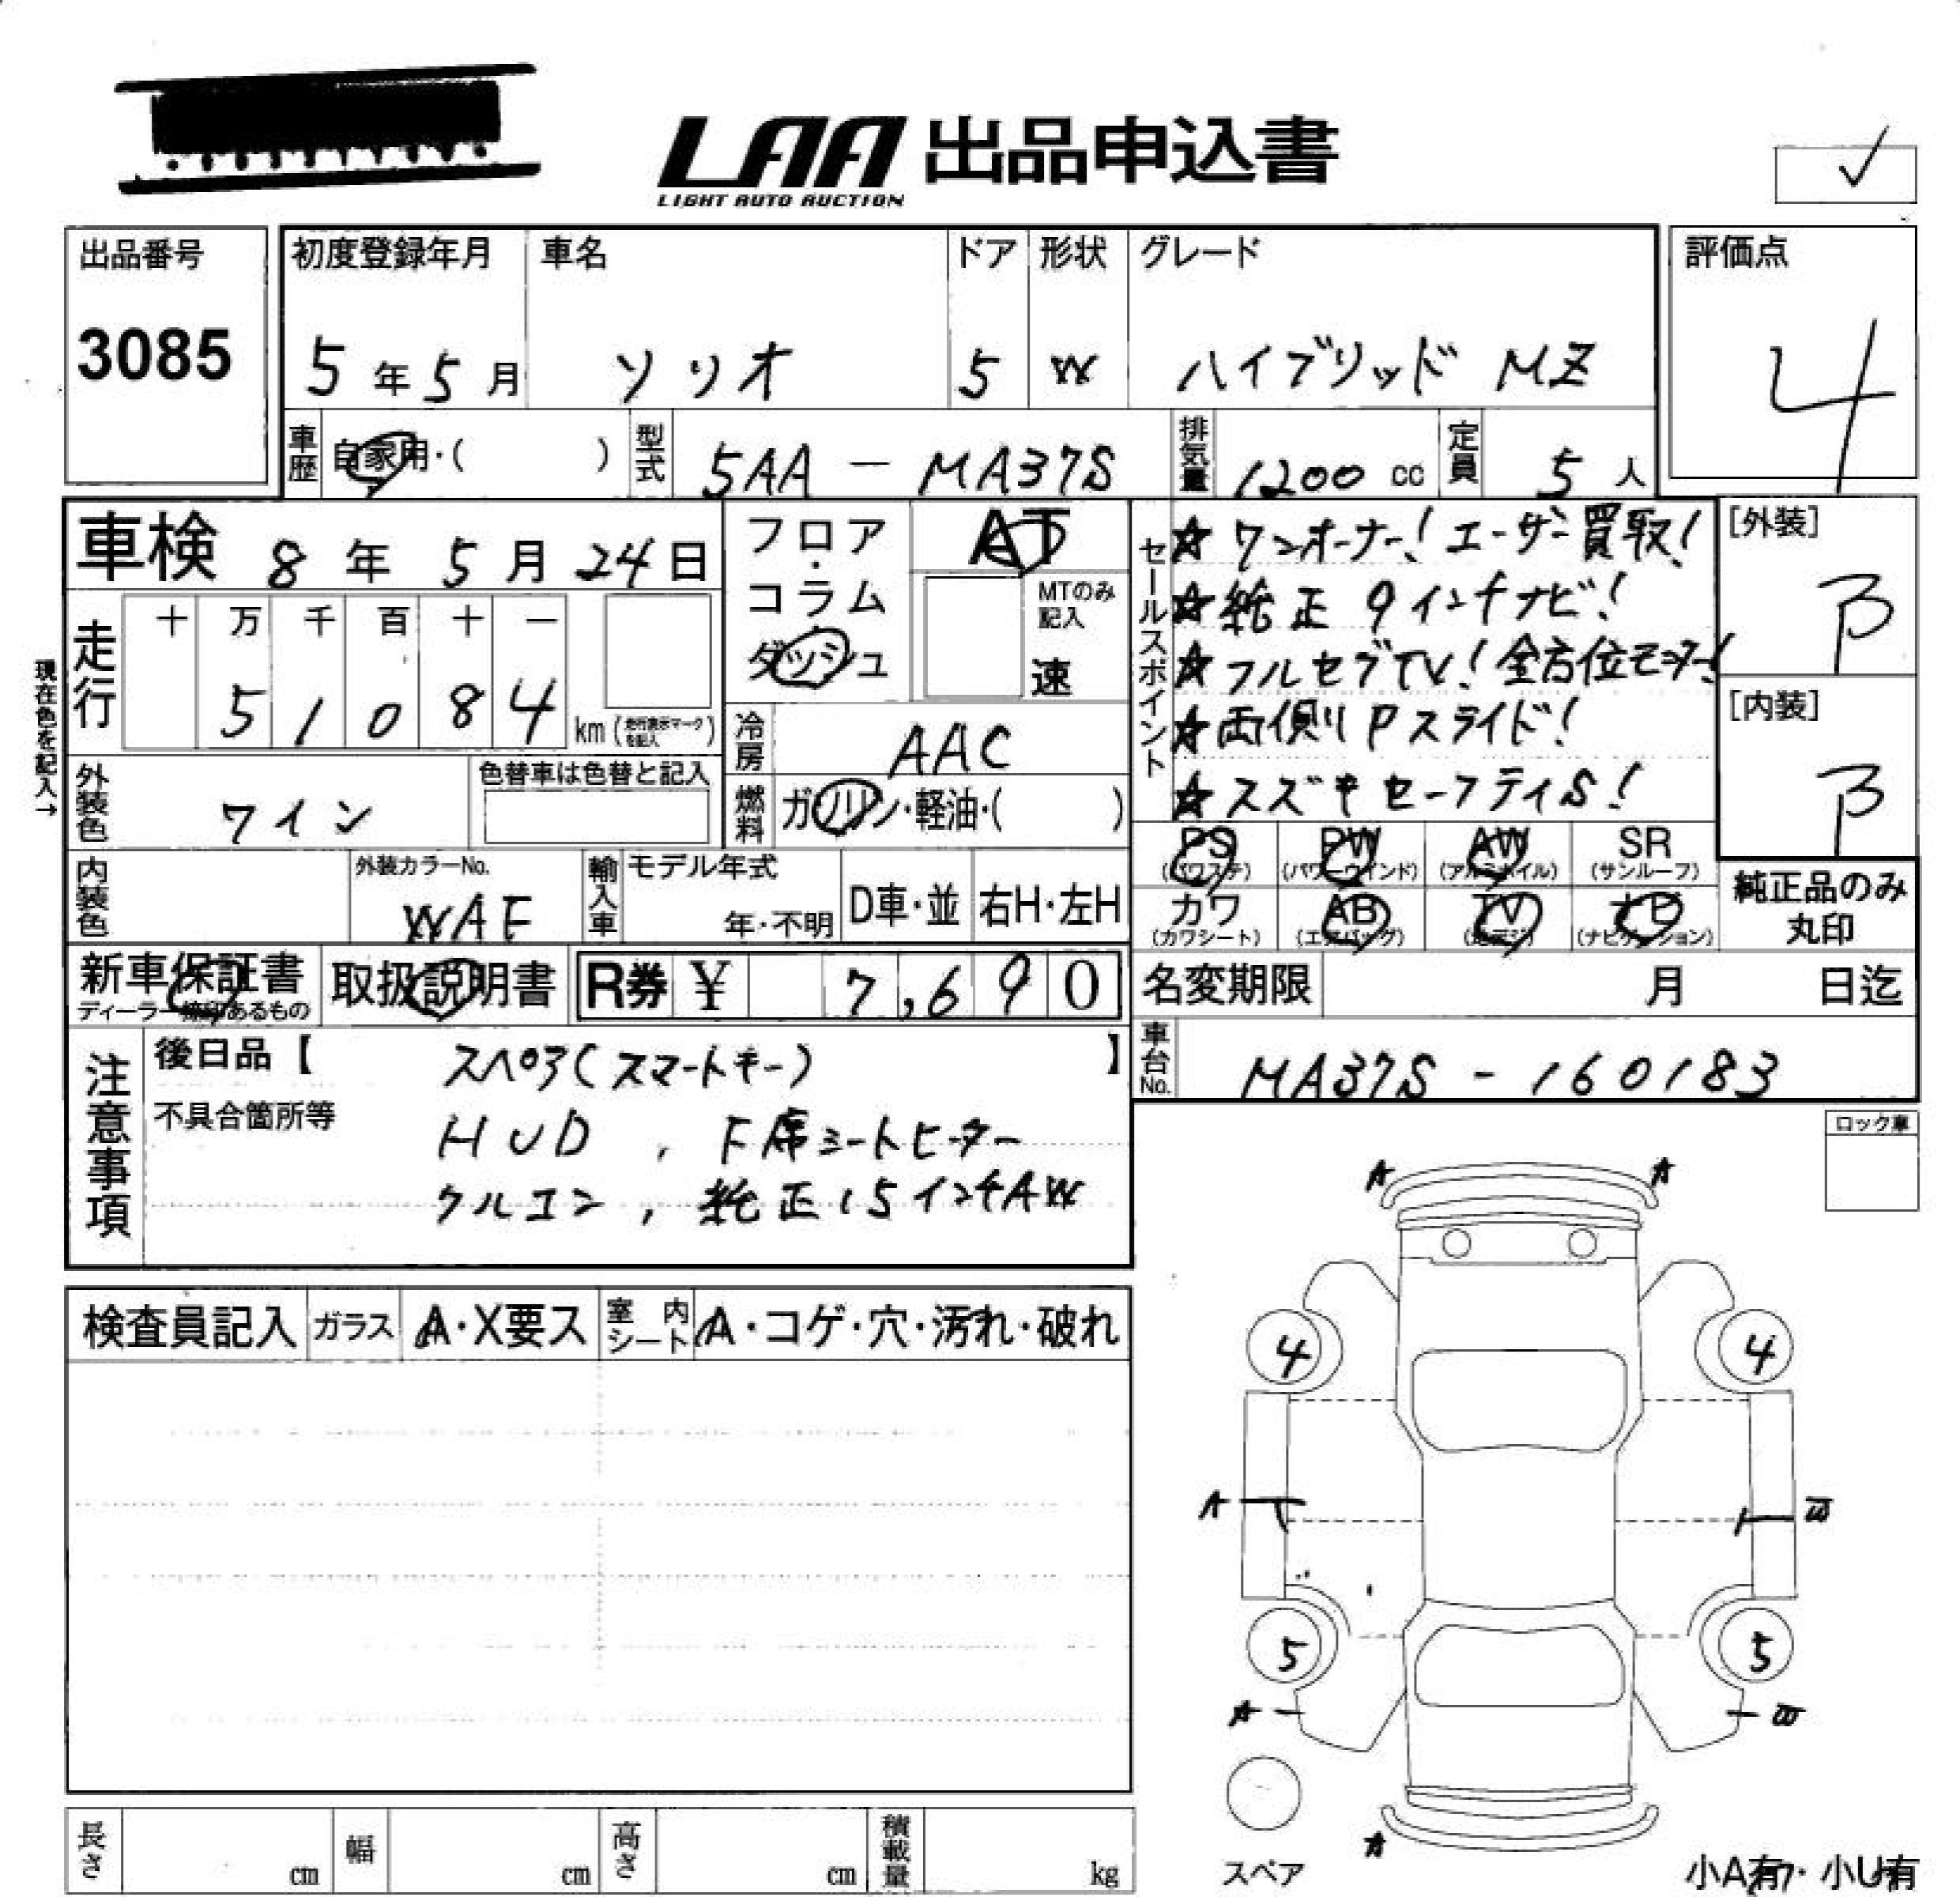 LAA 出品申込書
LIGHT AUTO AUCTION
✓
出品番号 3085
初度登録年月 5年5月
車名 ソリオ
ドア 5
形状 W
グレード ハイブリッド MZ
評価点 4
車歴 自家用・( )
型式 5AA - MA37S
排気量 1200 cc
定員 5人
車検 8年5月24日
走行 十 万 千 百 十 一
5 1 0 8 4 km (走行表示マークを記入)
現在色を記入→
外装色 ワイン
色替車は色替と記入
フロア・コラム ダッシュ
AT
MTのみ記入
速
冷房 AAC
燃料 ガソリン・軽油・( )
セールスポイント
☆ワンオーナー!ユーザー買取!
☆純正9インチナビ!
☆フルセグTV!全方位モニター!
☆両側Pスライド!
☆スズキセーフティS!
[外装] B
[内装] B
内装色
外装カラーNo. WAF
輸入車 モデル年式 年・不明
D車・並 右H・左H
PS (パワステ)
PW (パワーウインド)
AW (アルミホイル)
SR (サンルーフ)
カワ (カワシート)
AB (エアバッグ)
TV (地デジ)
ナビ (ナビゲーション)
純正品のみ丸印
新車保証書
ディーラー捺印あるもの
取扱説明書
R券 ¥ 7,690
名変期限 月 日迄
車台No. MA37S - 160183
注意事項
後日品【 スペア(スマートキー) 】
不具合箇所等
HUD , F席シートヒーター
クルコン, 純正15インチAW
ロック車
検査員記入
ガラス A・X要ス
室内シート A・コゲ・穴・汚れ・破れ
A A
4 4
A
5 5
A
A
スペア
小A有・小U有
長さ cm
幅 cm
高さ cm
積載量 kg